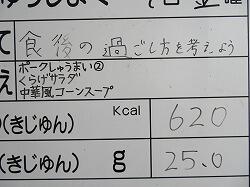 て 食後の過ごし方を考えよう
え ポークしゅうまい②
くらげサラダ
中華風コーンスープ
Kcal
(きじゅん) 620
(きじゅん) g 25.0